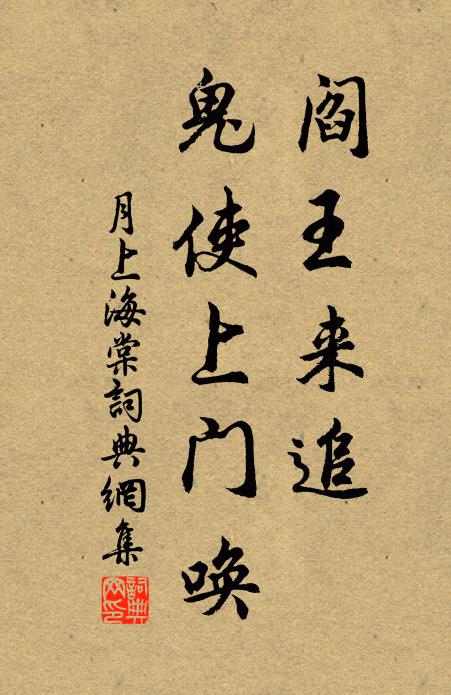 阎王来追
鬼使上门唤
月上海棠詞典網集
詞典
网印